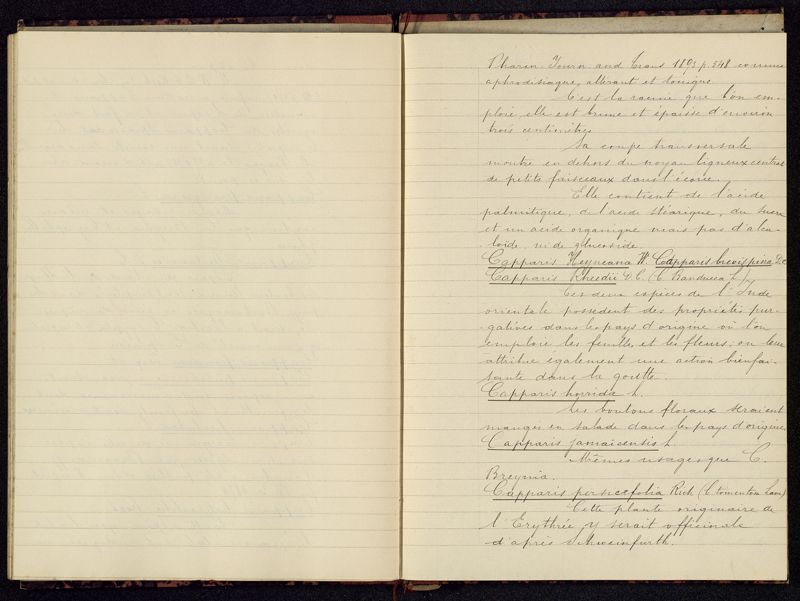 Pharm. Journ. and Trans 1893 p. 548 comme
aphrodisiaque, altérant et tonique.
C'est la racine que l'on em-
ploie, elle est brune et épaisse d'environ
trois centimètres
Sa coupe transversale
montre en dehors du noyau ligneux central
de petits faisceaux dans l'écorce.
Elle contient de l'acide
palmitique, de l'acide stéarique, du sucre
et un acide organique mais pas d'alca-
loïde, ni de glucoside.
Capparis Heyneana W. Capparis brevispina D.C.
Capparis Rheedii D.C. (C. Banducca L.)
Ces deux espèces de l'Inde
orientale possèdent des propriétés pur-
gatives dans les pays d'origine où l'on
emploie les feuilles et les fleurs; on leur
attribue également une action bienfai-
sante dans la goutte.
Capparis horrida L.
Les boutons floraux seraient
mangés en salade dans les pays d'origine
Capparis jamaicensis L.
Mêmes usages que C.
Breynia.
Capparis persicifolia Rich (C. tomentosa Lam)
Cette plante originaire de
l'Erythrée y serait officinale
d'après Schweinfurth.